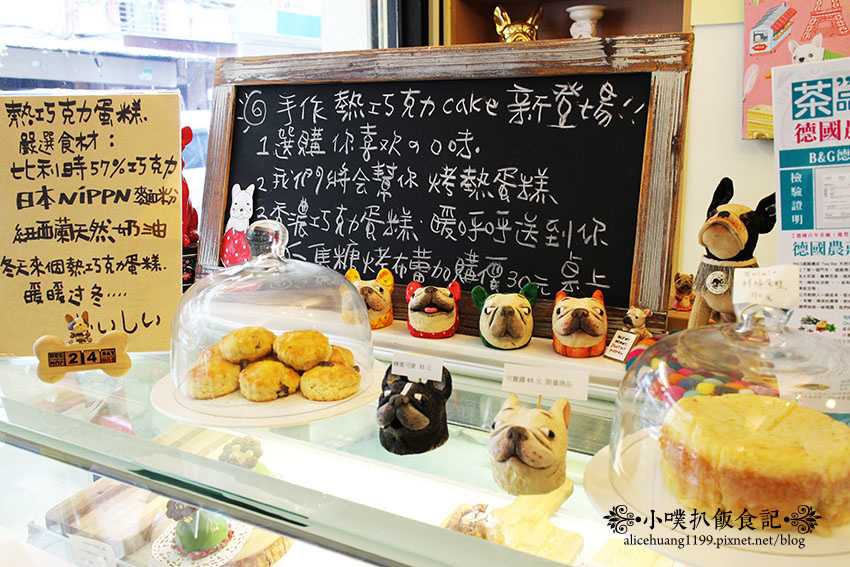 熱巧克力蛋糕
嚴選食材：
比利時57%巧克力
日本NIPPN麵粉
紐西蘭天然奶油
冬天來個熱巧克力蛋糕.
暖暖过冬....
おいしい
DEC
24
手作 熱巧克力cake 新登場!!
1.選購你喜欢の口味.
2.我們將会幫你 烤熱蛋糕
3.香濃巧克力蛋糕.暖呼呼送到你
桌上
焦糖烤布蕾加購價30元
蜂蜜司康 35元
可麗露 65元 限量商品
茶
德國農
B&G德
檢驗
證明
小噗扒飯食記
alicehuang1199.pixnet.net/blog